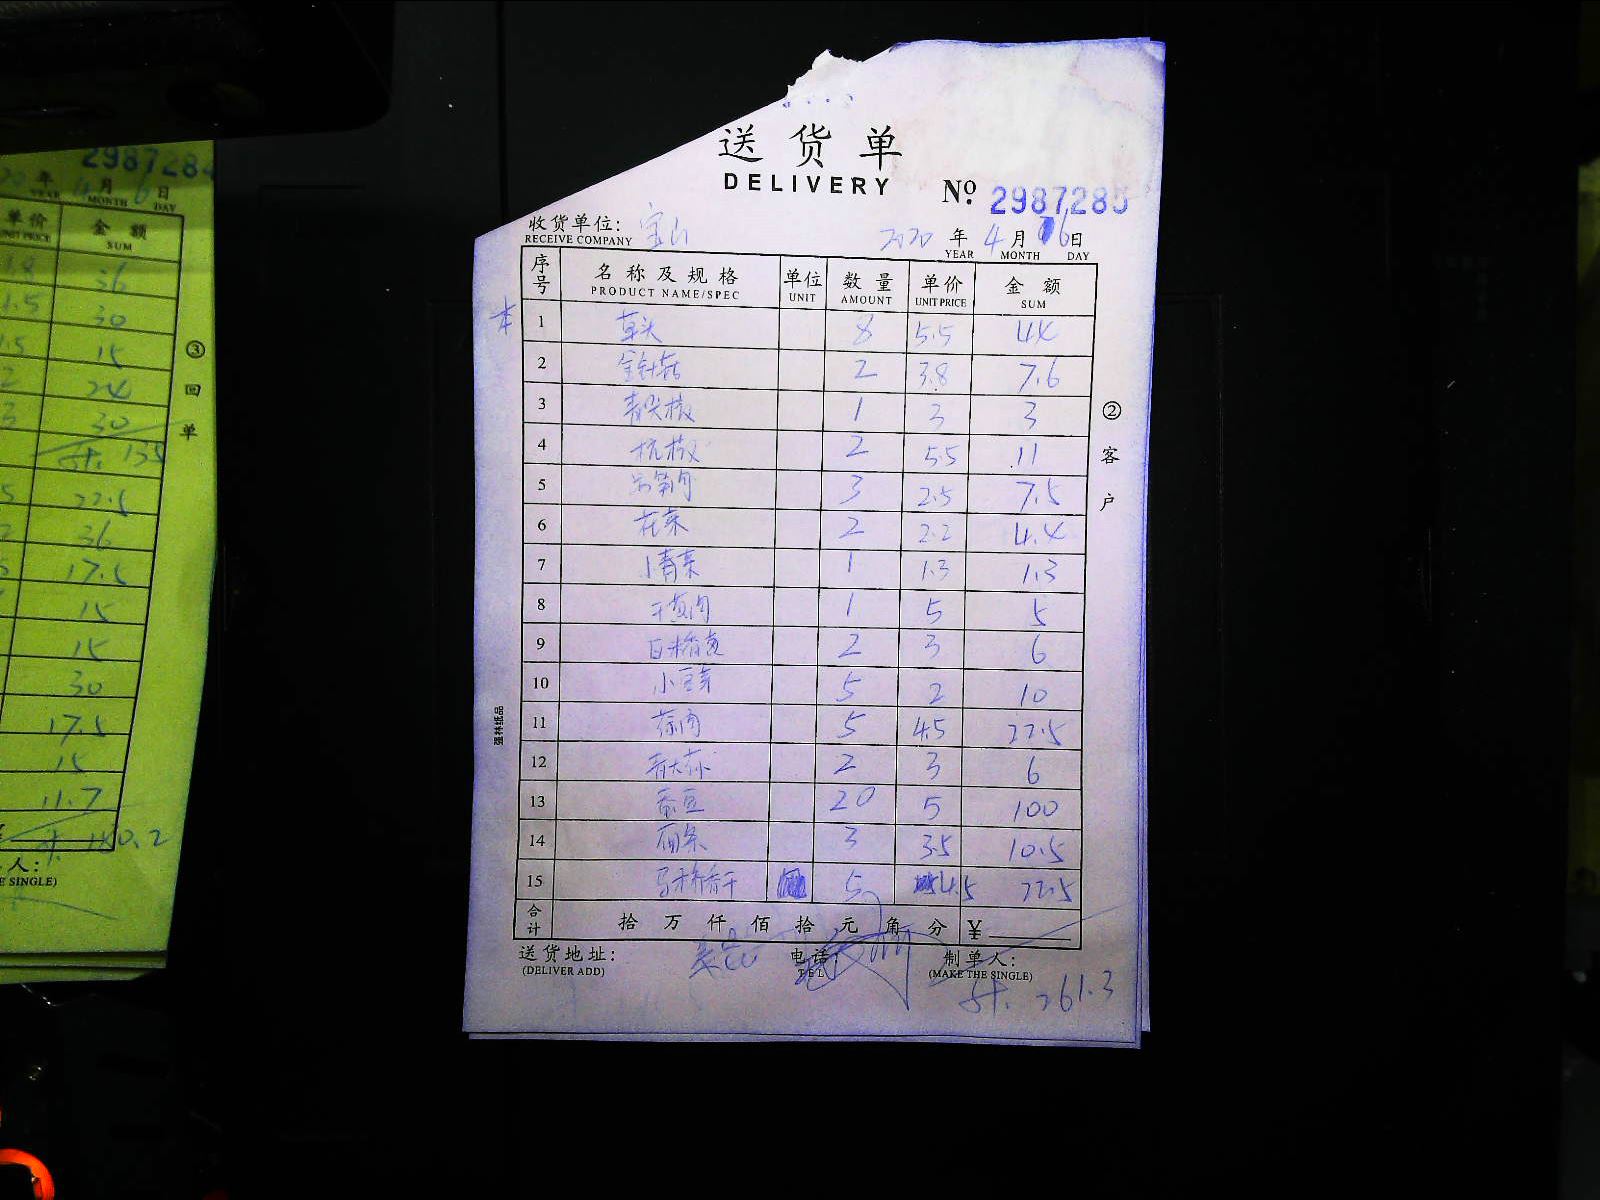 2987284
年 4月 6日
YEAR MONTH DAY
单价 金额
UNIT PRICE SUM
1.8 36
1.5 30
1.5 15
2 24
3 30
计. 135
22.5
36
17.5
15
15
30
17.5
15
11.7
人:
E SINGLE)
③回单
送货单
DELIVERY
No: 2987285
收货单位: 宝山 2020 年 4 月 6 日
RECEIVE COMPANY YEAR MONTH DAY
序号 名称及规格 单位 数量 单价 金额
PRODUCT NAME/SPEC UNIT AMOUNT UNIT PRICE SUM
1 草头 8 5.5 44
2 金针菇 2 3.8 7.6
3 青尖椒 1 3 3
4 杭椒 2 5.5 11
5 2.5 3 7.5
6 花菜 2 2.2 4.4
7 小青菜 1 1.3 1.3
8 1 5 5
9 2 3 6
10 小豆芽 5 2 10
11 5 4.5 22.5
12 青大蒜 2 3 6
13 蚕豆 20 5 100
14 面条 3 3.5 10.5
15 5 4.5 22.5
合计 拾 万 仟 佰 拾 元 角 分 ¥
送货地址: 电话: 制单人:
(DELIVER ADD) TEL (MAKE THE SINGLE)
计. 261.3
②客户
强林纸品